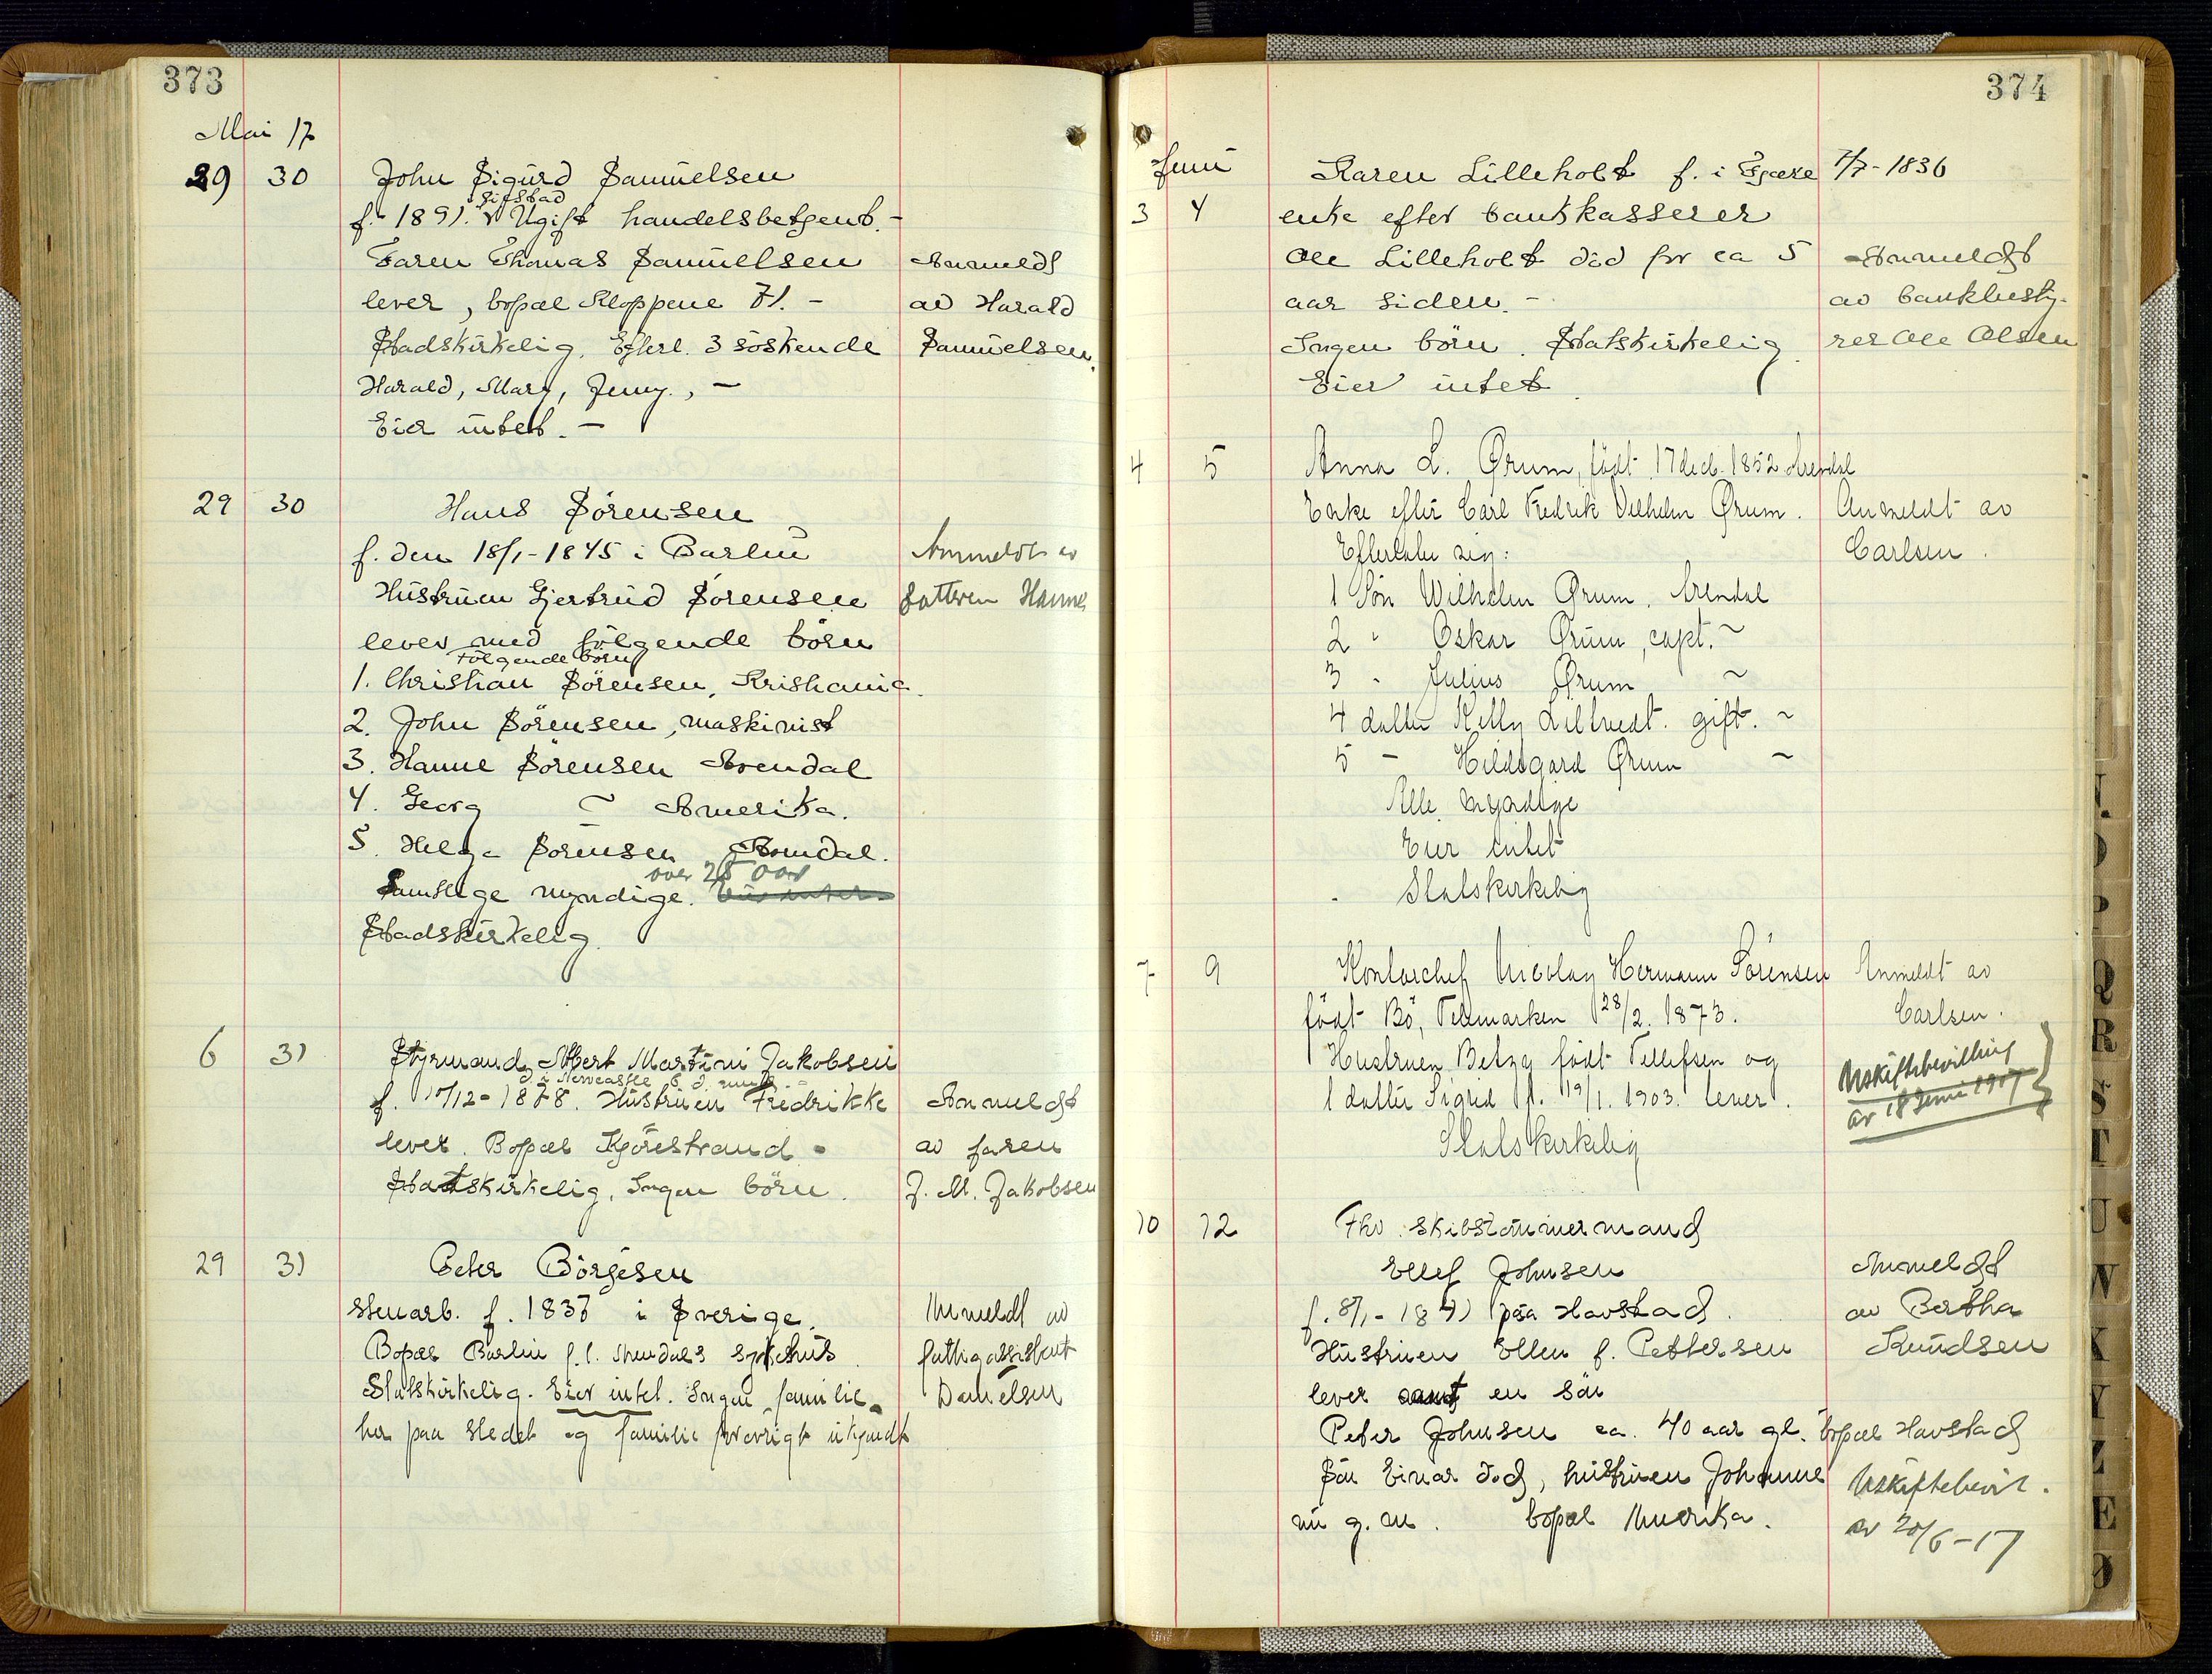 373
Mai 17
29 30 John Sigurd Samuelsen
f. 1891. Ugift handelsbetjent. -
Faren Thomas Samuelsen Anmeldt
lever, bopæl Kloppene 71. - av Harald
Stadskirkelig. Efterl. 3 söskende Samuelsen.
Harald, Mary, Jenny, -
Eier intet. -
29 30 Hans Sörensen
f. den 18/1-1845 i Barbu Anmeldt av
Hustruen Gjertrud Sörensen datteren Hanne
lever med fölgende börn
Fölgende börn
1. Christian Sörensen, Kristiania.
2. John Sörensen, maskinist
3. Hanne Sörensen Arendal
4. Georg ~ Amerika.
5. Helga Sörensen Arendal.
over 25 aar
Samtlige myndige. Eier intet.
Stadskirkelig.
6 31 Styrmand Albert Martini Jakobsen
d. i Newcastle 6 d. mnd. -
f. 10/12-1878. Hustruen Fredrikke Anmeldt
lever. Bopæl Kjörestrand - av faren
Statskirkelig, Ingen börn. J. M. Jakobsen
29 31 Peter Börgesen
stenarb. f. 1837 i Sverige. Anmeldt av
Bopæl Barbu f.t. Arendals sykehus fattigassistent
Statskirkelig. Eier intet. Ingen familie Danielsen
her paa stedet og familie forövrigt ukjendt
374
Juni Karen Lilleholt f. i Fjære 7/7-1836
3 4 enke efter bankkasserer
Ole Lilleholt död for ca 5 Anmeldt
aar siden. - av bankbesty-
Ingen börn. Statskirkelig. rer Ole Olsen
Eier intet.
4 5 Anna L. Ørum, födt 17 decb. 1852 Arendal
Enke efter Carl Fredrik Vilhelm Ørum. Anmeldt av
Efterlater sig: Carlsen.
1 Sön Wilhelm Ørum, Arendal
2 " Oskar Ørum, capt. ~
3 " Julius Ørum ~
4 datter Kelly Lilltvedt. gift. ~
5 - Hildegard Ørum ~
Alle myndige
Eier intet
Statskirkelig
7 9 Kontorchef Nicolay Hermann Sörensen Anmeldt av
födt Bö, Telemarken 28/2. 1873. Carlsen.
Hustruen Betzy födt Tellefsen og Uskiftebevilling
1 datter Sigrid f. 19/1. 1903. lever. av 18 Juni 1917
Statskirkelig
10 12 Fhv. skibstömmermand
Ellef Johnsen Anmeldt
f. 8/1-1841 paa Havstad. av Bertha
Hustruen Ellen f. Pettersen Knudsen
lever samt en sön
Peter Johnsen ca. 40 aar gl. bopæl Havstad
Sön Einar död, hustruen Johanne Uskiftebevil.
nu g. m. bopæl Amerika. av 20/6-17
N.
P
Q
R
S
T
U
W
X
Y
Z
Æ
Ø